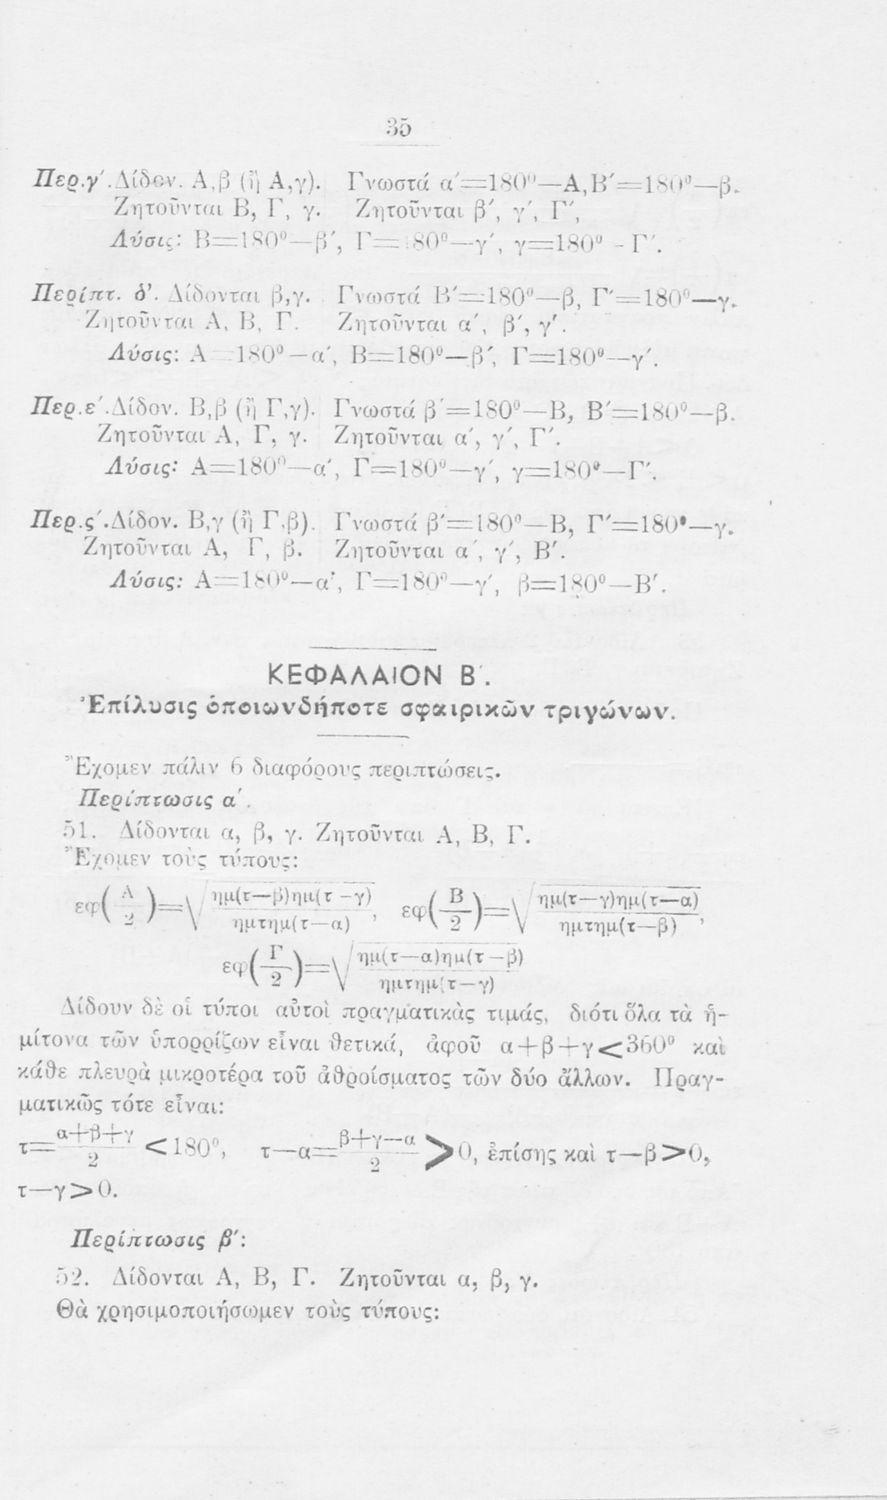 35
Περ.γ΄. Δίδον. Α,β (ἢ Α,γ). Γνωστά α΄=180⁰—Α,Β΄=180⁰—β.
Ζητοῦνται Β, Γ, γ. Ζητοῦνται β΄, γ΄, Γ΄,
Λύσις: Β=180⁰—β΄, Γ=180⁰—γ΄, γ=180⁰-Γ΄.
Περίπτ. δ΄. Δίδονται β,γ. Γνωστά Β΄=180⁰—β, Γ΄=180⁰—γ.
Ζητοῦνται Α, Β, Γ. Ζητοῦνται α΄, β΄, γ΄.
Λύσις: Α=180⁰—α΄, Β=180⁰—β΄, Γ=180⁰—γ΄.
Περ.ε΄.Δίδον. Β,β (ἢ Γ,γ). Γνωστά β΄=180⁰—Β, Β΄=180⁰—β.
Ζητοῦνται Α, Γ, γ. Ζητοῦνται α΄, γ΄, Γ΄.
Λύσις: Α=180⁰—α΄, Γ=180⁰—γ΄, γ=180⁰—Γ΄.
Περ.ς΄.Δίδον. Β,γ (ἢ Γ,β). Γνωστά β΄=180⁰—Β, Γ΄=180⁰—γ.
Ζητοῦνται Α, Γ, β. Ζητοῦνται α΄, γ΄, Β΄.
Λύσις: Α=180⁰—α΄, Γ=180⁰—γ΄, β=180⁰—Β΄.
ΚΕΦΑΛΑΙΟΝ Β΄.
Ἐπίλυσις ὁποιωνδήποτε σφαιρικῶν τριγώνων.
Ἔχομεν πάλιν 6 διαφόρους περιπτώσεις.
Περίπτωσις α΄.
51. Δίδονται α, β, γ. Ζητοῦνται Α, Β, Γ.
Ἔχομεν τοὺς τύπους:
εφ(Α/2)=√ημ(τ—β)ημ(τ-γ)/ημτημ(τ—α) , εφ(Β/2)=√ημ(τ—γ)ημ(τ—α)/ημτημ(τ—β) ,
εφ(Γ/2)=√ημ(τ—α)ημ(τ—β)/ημτημ(τ—γ)
Δίδουν δὲ οἱ τύποι αὐτοὶ πραγματικὰς τιμάς, διότι ὅλα τὰ ἡ-
μίτονα τῶν ὑπορρίζων εἶναι θετικά, ἀφοῦ α+β+γ<360⁰ καὶ
κάθε πλευρὰ μικροτέρα τοῦ ἀθροίσματος τῶν δύο ἄλλων. Πραγ-
ματικῶς τότε εἶναι:
τ=α+β+γ/2 <180⁰, τ—α=β+γ—α/2 >0, ἐπίσης καὶ τ—β>0,
τ—γ>0.
Περίπτωσις β΄:
52. Δίδονται Α, Β, Γ. Ζητοῦνται α, β, γ.
Θὰ χρησιμοποιήσωμεν τοὺς τύπους: